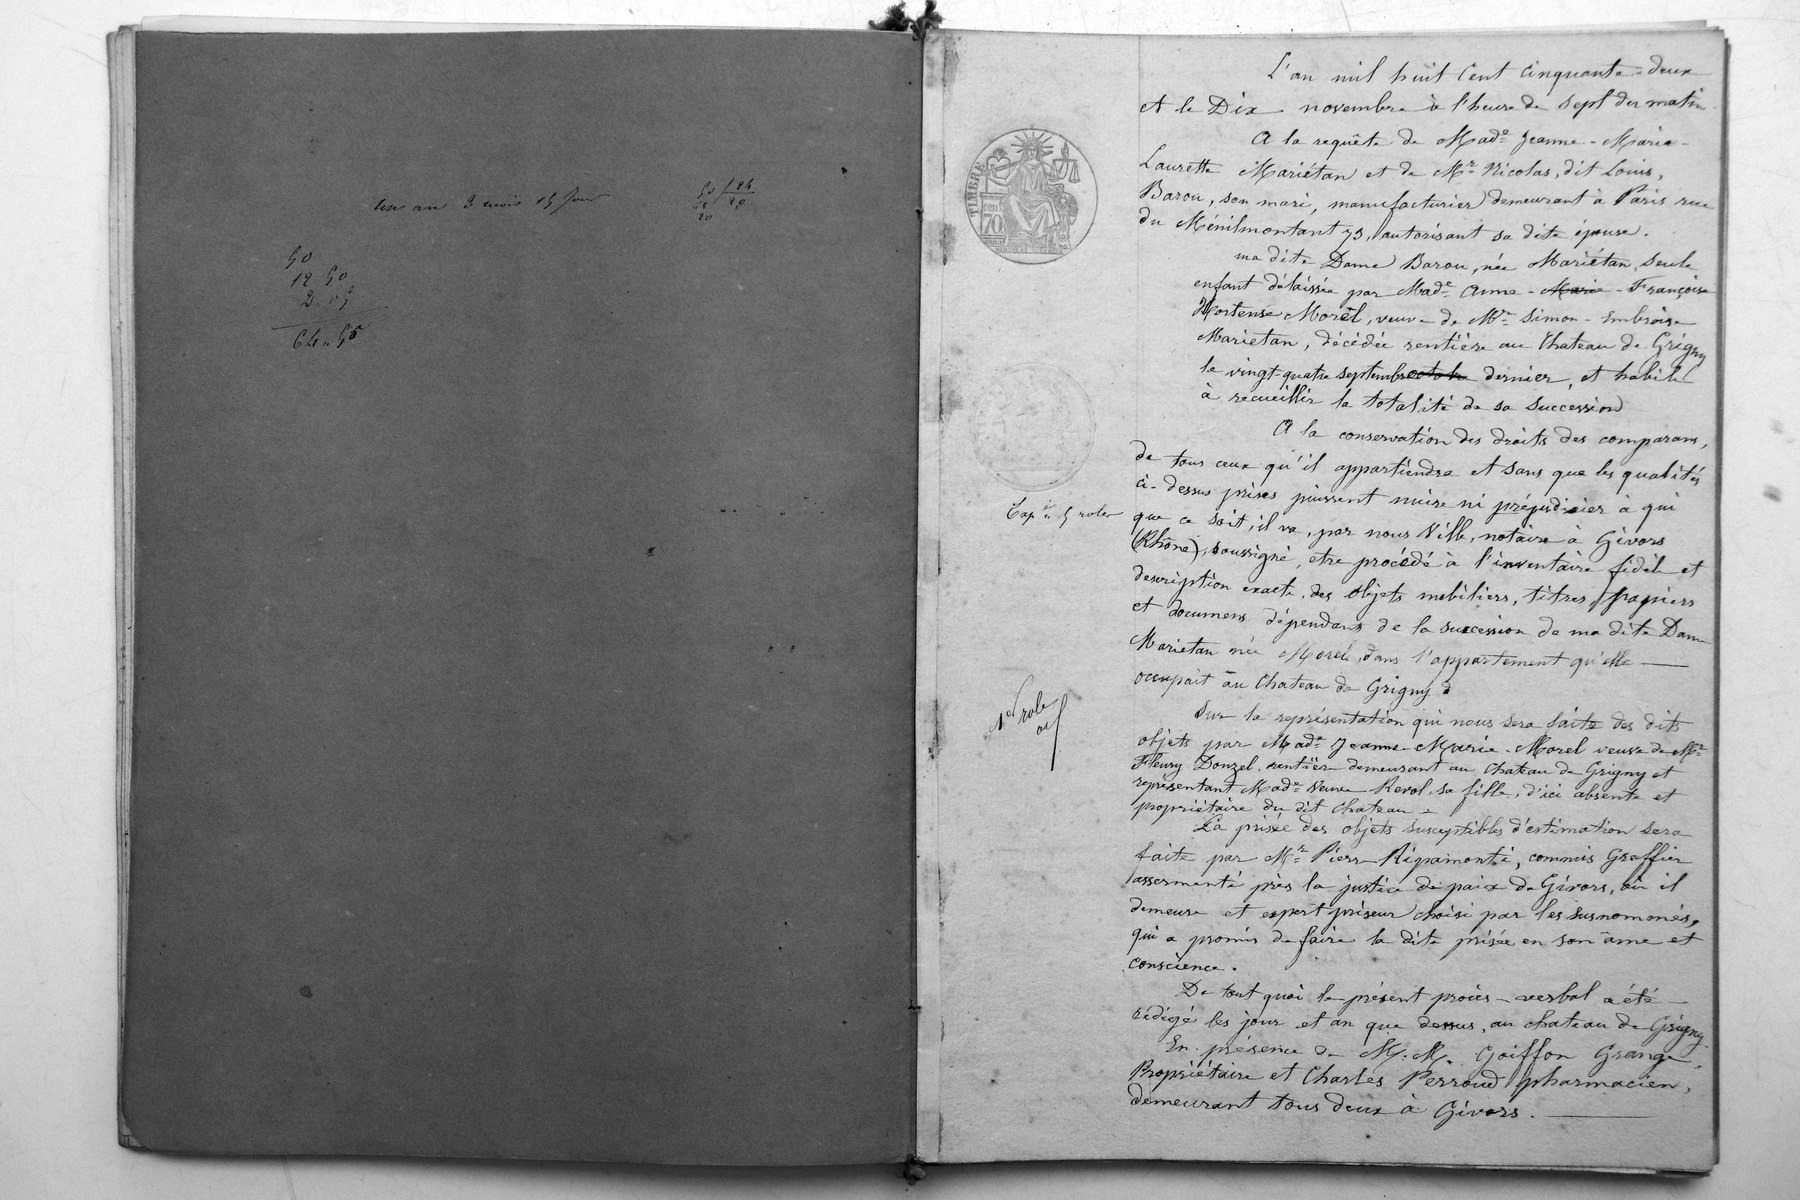 un an 3 mois 15 jour
50
12 50
2.05
64.55
20
20
L'an mil huit Cent Cinquante-deux
et le Dix novembre à l'heure de sept du matin
A la requête de Made Jeanne-Marie-
Laurette Mariétan et de Mr Nicolas, dit Louis,
Barou, son mari, manufacturier demeurant à Paris rue
du Ménilmontant 73, autorisant sa dite épouse.
ma dite Dame Barou, née Mariétan, seule
enfant délaissée par Made Anne-Marie-Françoise
Hortense Morel, veuve de Mr Simon-Embroise
Marietan, décédée rentière au Chateau de Grigny
le vingt-quatre septembre octobre dernier, et habile
à recueillir la totalité de sa succession
A la conservation des droits des comparans,
de tous ceux qu'il appartiendra et sans que les qualités
ci-dessus prises puissent nuire ni préjudicier à qui
que ce soit, il va, par nous Ville, notaire à Givors
(Rhône), soussigné, etre procédé à l'inventaire fidèle et
description exacte, des objets mobiliers, titres, papiers
et documens dépendans de la succession de ma dite Dame
Marietan née Morel, dans l'appartement qu'elle
occupait au Chateau de Grigny
Sur la représentation qui nous sera faite des dits
objets par Made Jeanne-Marie-Morel veuve de Mr
Fleury Donzel, rentière demeurant au Chateau de Grigny et
représentant Made Veuve Revol, sa fille, d'ici absente et
propriétaire du dit Chateau.
La prisée des objets susceptibles d'estimation sera
faite par Mr Pierre Ripamonti, commis Greffier
assermenté près la justice de paix de Givors, où il
demeure et expert priseur choisi par les susnommés,
qui a promis de faire la dite prisée en son âme et
conscience.
De tout quoi le présent procès-verbal a été
rédigé les jour et an que dessus, au chateau de Grigny.
En présence de M.M. Goiffon Grange,
Propriétaire et Charles Perroud pharmacien,
demeurant tous deux à Givors.
TIMBRE
70
5 roles
1er role